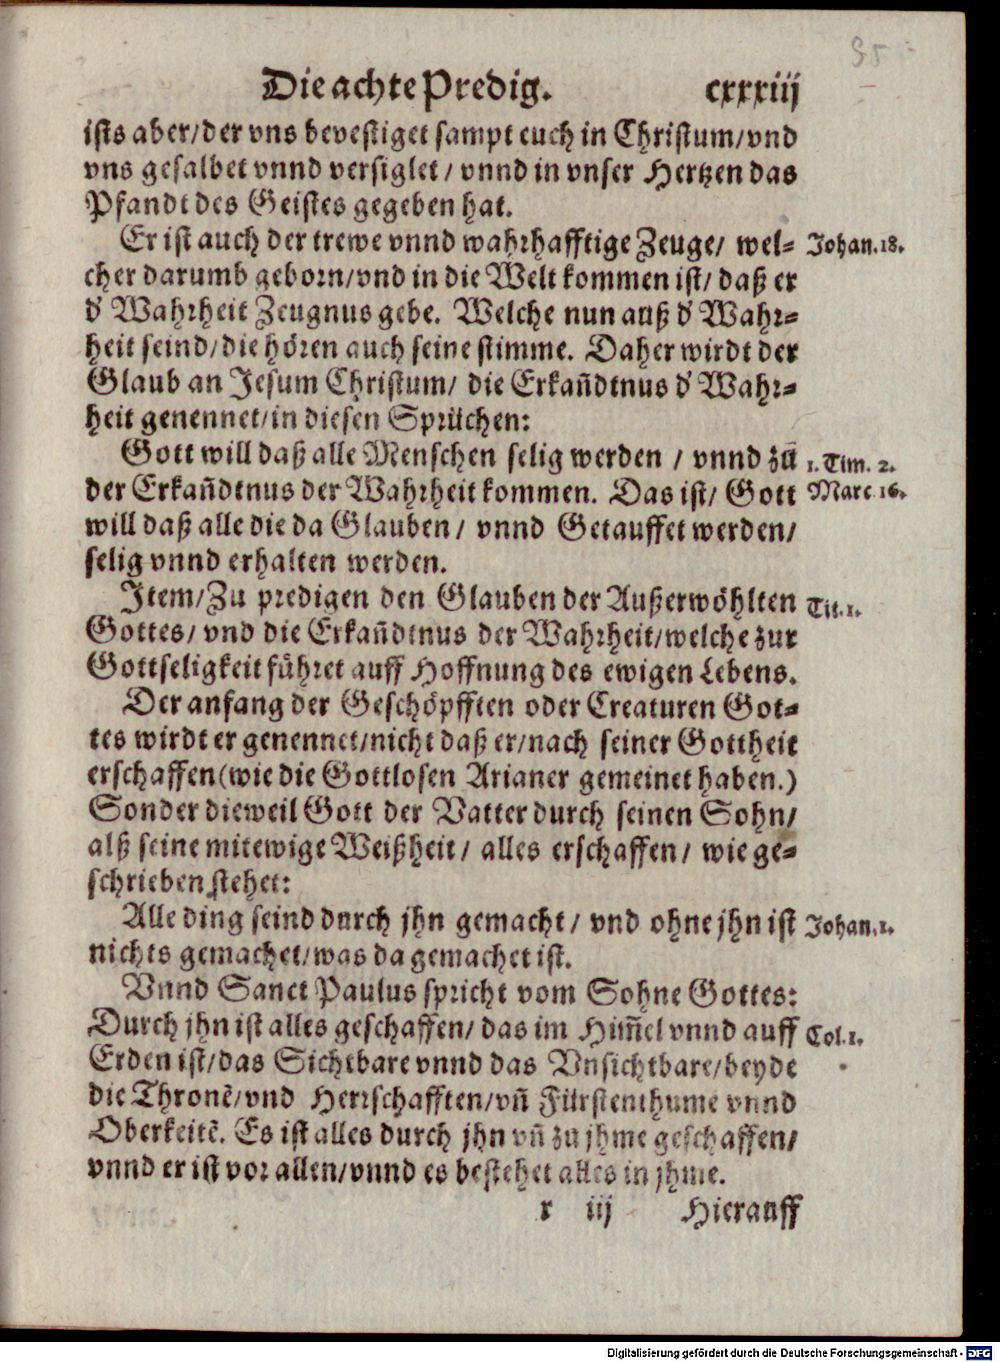 95
Die achte Predig. cxxxiij
ists aber/der vns bevestiget sampt euch in Christum/vnd
vns gesalbet vnnd versiglet/ vnnd in vnser Hertzen das
Pfandt des Geistes gegeben hat.
Er ist auch der trewe vnnd wahrhafftige Zeuge/ wel= Johan.18.
cher darumb geborn/vnd in die Welt kommen ist/ daß er
d' Wahrheit Zeugnus gebe. Welche nun auß d' Wahr=
heit seind/die hören auch seine stimme. Daher wirdt der
Glaub an Jesum Christum/ die Erkañdtnus d' Wahr=
heit genennet/in diesen Sprüchen:
Gott will daß alle Menschen selig werden / vnnd zů 1. Tim. 2.
der Erkañdtnus der Wahrheit kommen. Das ist/ Gott Marc 16.
will daß alle die da Glauben/ vnnd Getauffet werden/
selig vnnd erhalten werden.
Item/Zu predigen den Glauben der Außerwöhlten Tit.1.
Gottes/ vnd die Erkañdtnus der Wahrheit/welche zur
Gottseligkeit führet auff Hoffnung des ewigen Lebens.
Der anfang der Geschöpfften oder Creaturen Got=
tes wirdt er genennet/nicht daß er/nach seiner Gottheit
erschaffen(wie die Gottlosen Arianer gemeinet haben.)
Sonder dieweil Gott der Vatter durch seinen Sohn/
alß seine mitewige Weißheit/ alles erschaffen/ wie ge=
schrieben stehet:
Alle ding seind durch jhn gemacht/ vnd ohne jhn ist Johan.1.
nichts gemachet/was da gemachet ist.
Vnnd Sanct Paulus spricht vom Sohne Gottes:
Durch jhn ist alles geschaffen/ das im Him̃el vnnd auff Col.1.
Erden ist/das Sichtbare vnnd das Vnsichtbare/beyde
die Thronẽ/vnd Herrschafften/vñ Fürstenthume vnnd
Oberkeitẽ. Es ist alles durch jhn vñ zu jhme geschaffen/
vnnd er ist vor allen/vnnd es bestehet alles in jhme.
r iij Hierauff
Digitalisierung gefördert durch die Deutsche Forschungsgemeinschaft - DFG